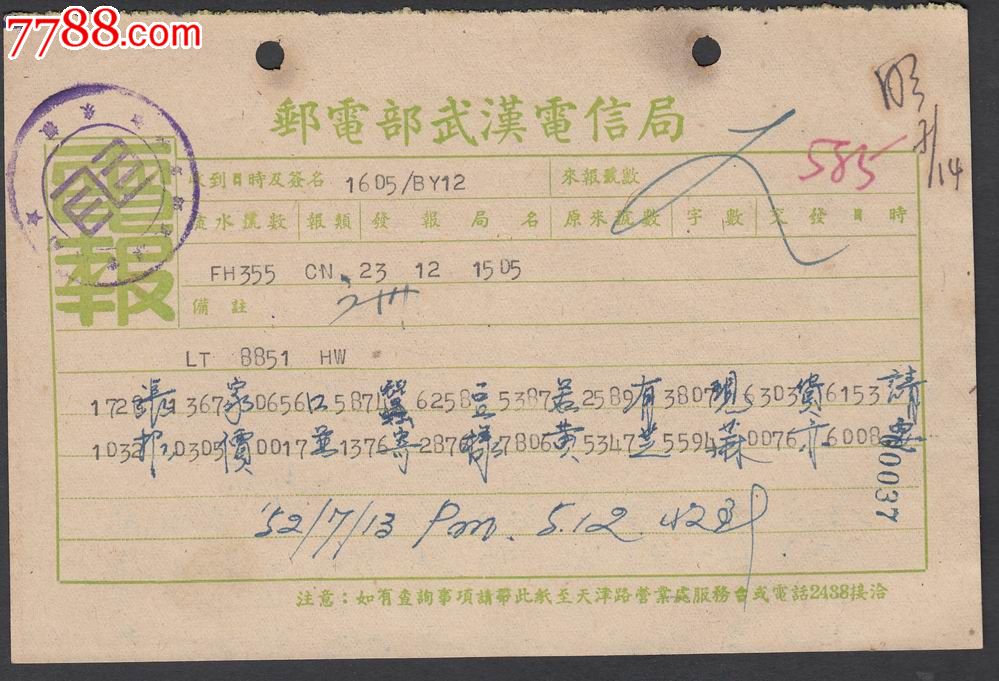 7788.com
郵電部武漢電信局
明
7/14
585
電報
收到日時及簽名 1605/BY12 來報號數
流水號數 報類 發報局名 原來號數 字數 交發日時
FH355 CN 23 12 1505
備註
LT 8851 HW
1728張 1367家 0656口 5871蠶 6258豆 5387若 2589有 3807現 6303貨 6153請
1032 0303價 0017並 1376寄 2876樣 7806黃 5347芝 5594蔴 0076亦 6008
00037
'52/7/13 Pm. 5.12
注意：如有查詢事項請帶此紙至天津路營業處服務台或電話2438接洽